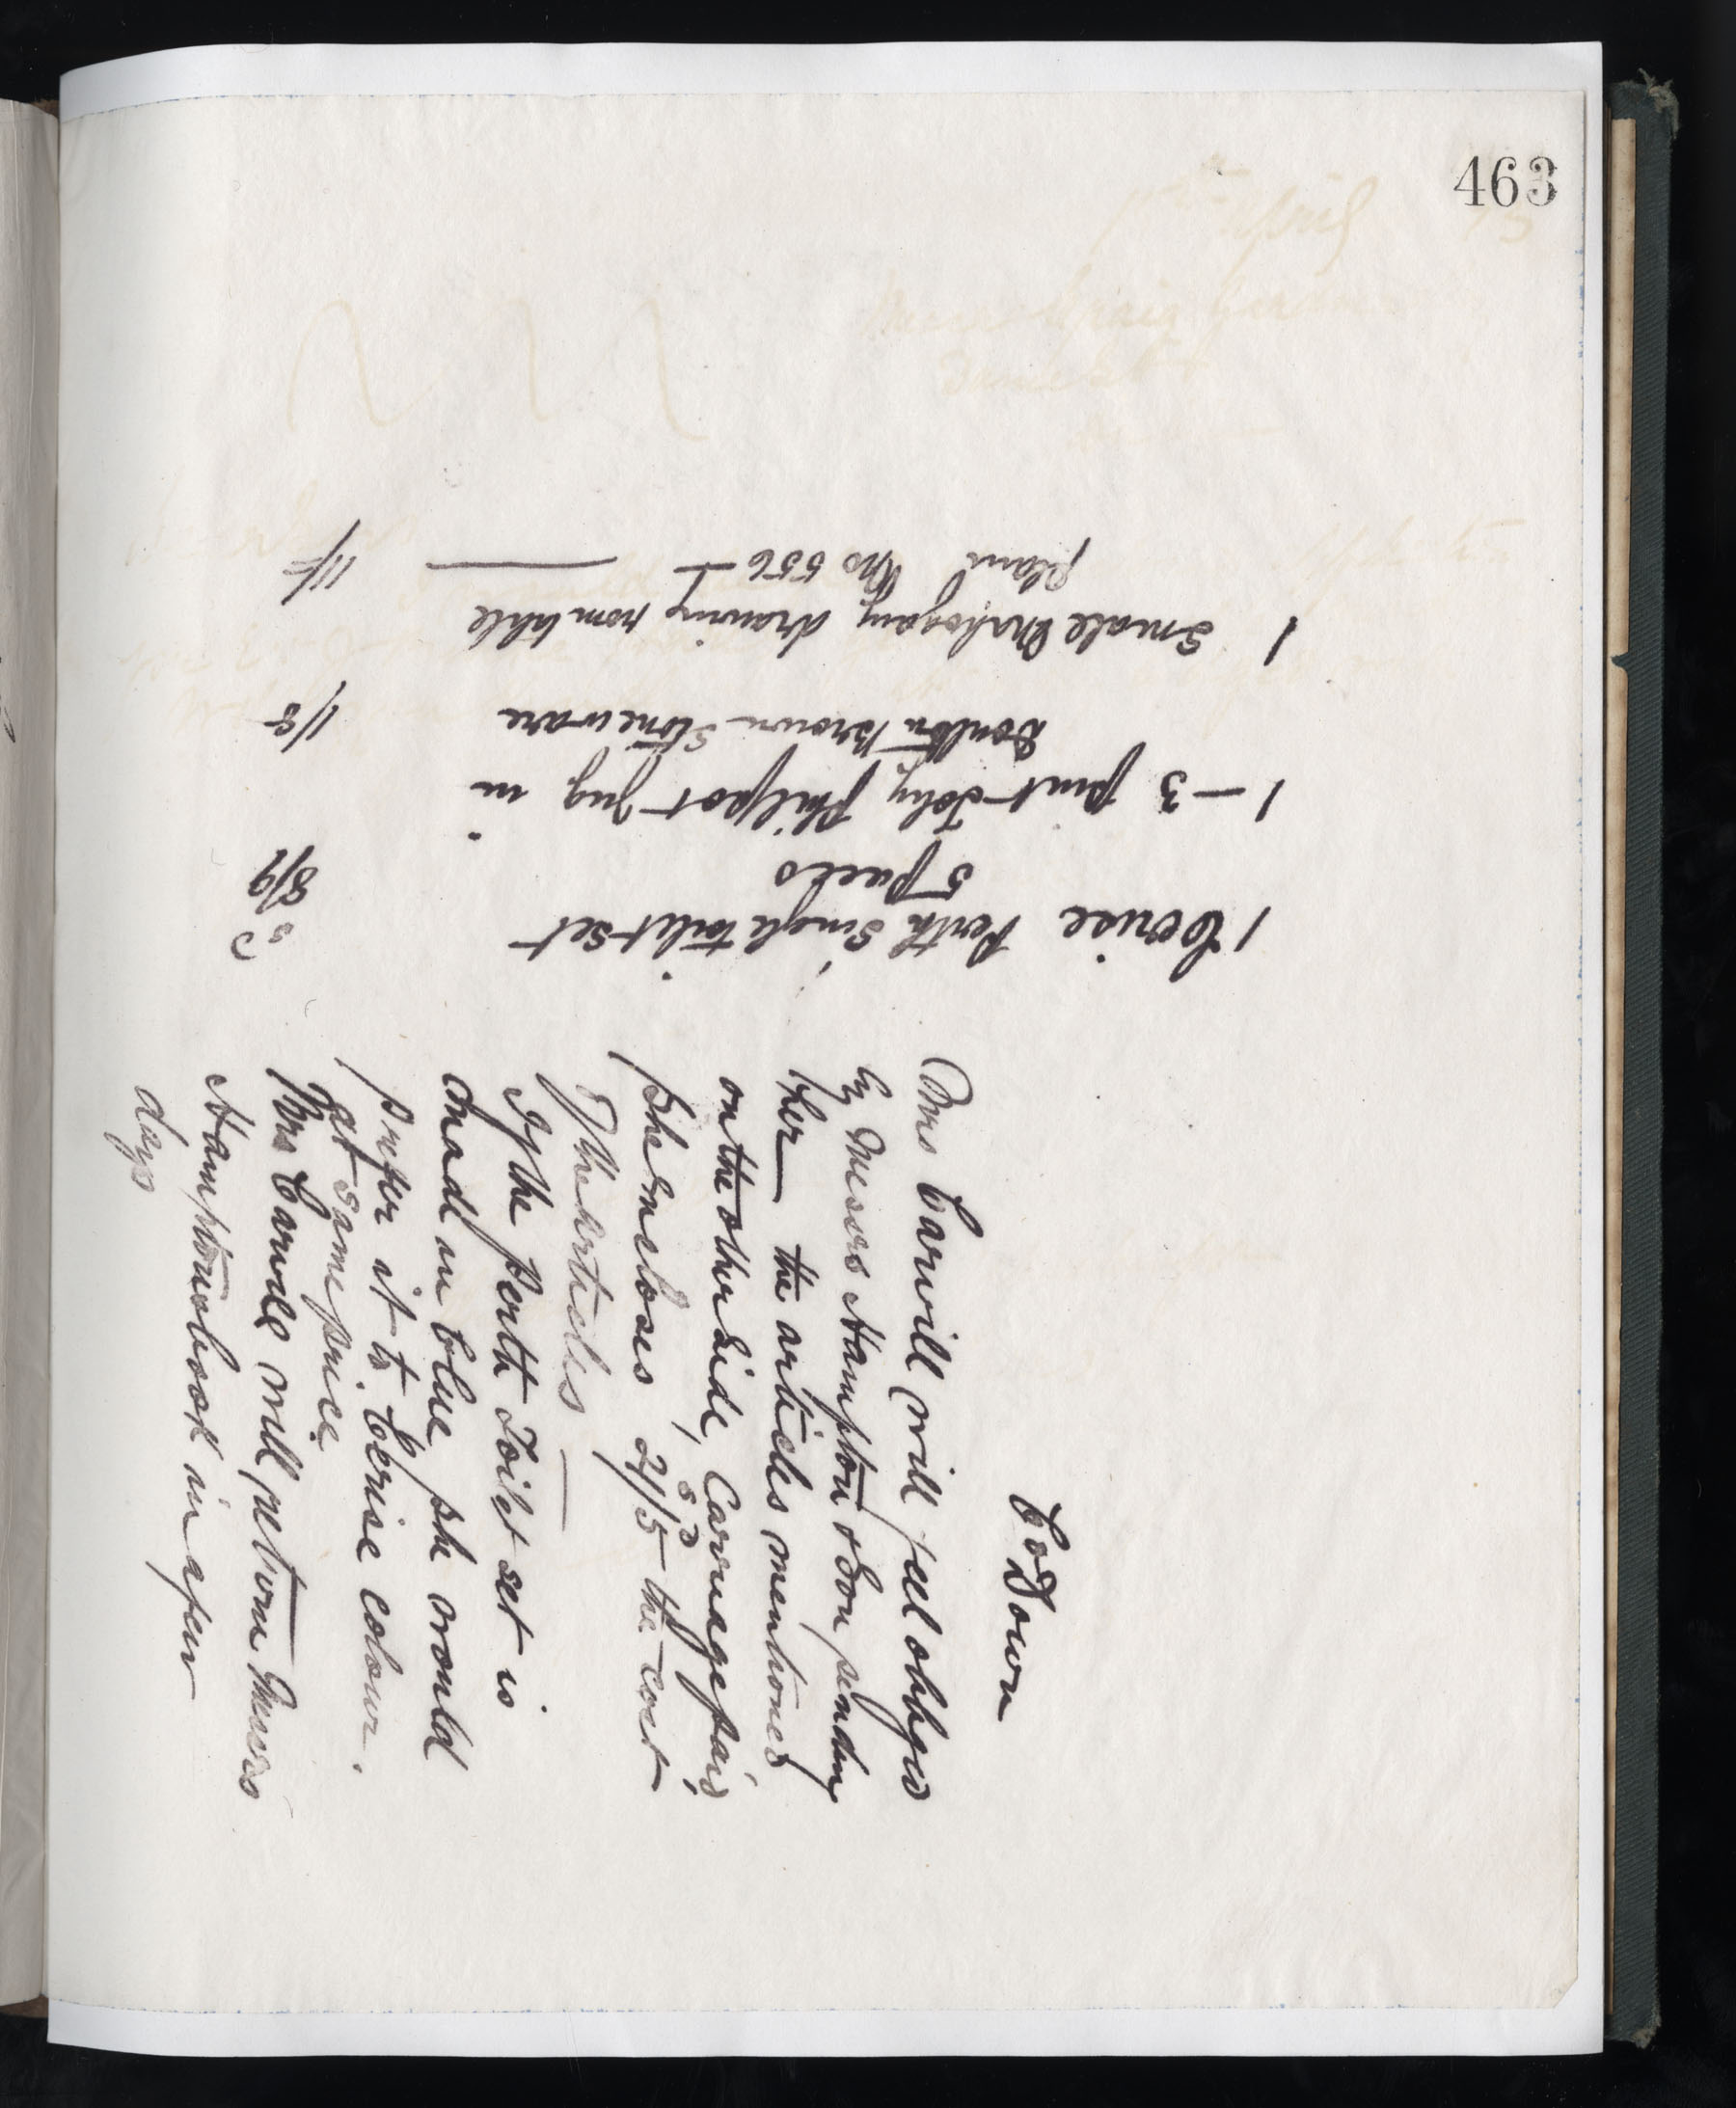 463
Co Down
Mrs Carvill will feel obliged
by Messrs Hampton & Son sending
her the articles mentioned
on the other side, Carriage paid,
she encloses 21/5 the cost
of the articles —
If the Perth Toilet set is
made in blue she would
prefer it to Cerise colour.
at same price
Mrs Carvill will return Messrs
Hamptons book in a few
days
s d
1 Cerise Perth Single toilet set
5 pieces 8/9
1 — 3 pint Toby Philpot Jug in
Doulton Brown Stoneware 1/8
1 Small Mahogany drawing room table
No 556 — 11/-